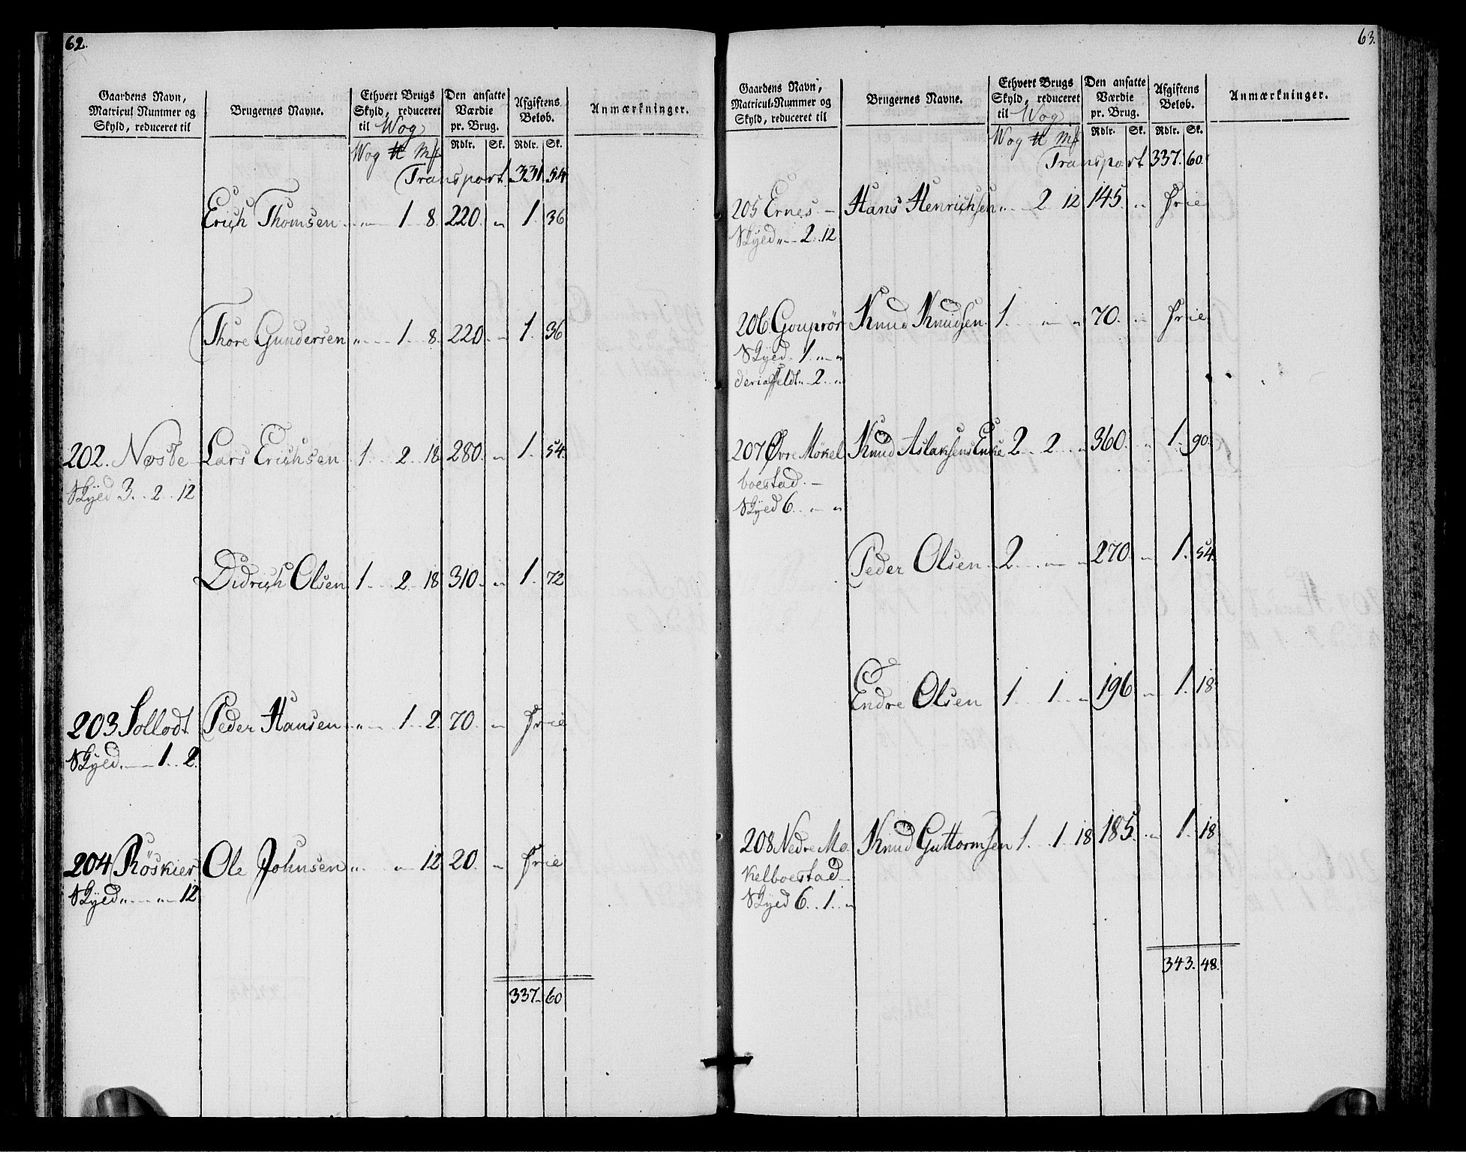 62.
Gaardens Navn, Matricul Nummer og Skyld, reduceret til | Brugernes Navne. | Ethvert Brugs Skyld, reduceret til Wog | Den ansatte Værdie pr. Brug. | Afgiftens Beløb. | Anmærkninger.
Wog ℔ Mk | Rdlr. | Sk. | Rdlr. | Sk.
Transport 331 54
Erich Thomsen " 1 8 220 " 1 36
Thore Gundersen " 1 8 220 " 1 36
202. Næsbe Lars Erichsen 1 2 18 280 " 1 54
Skyed 3 2 12
Didrich Olsen 1 2 18 310 " 1 72
203 Sollodt Peder Hansen " 1 2 70 " Frie
Skyed " 1 2
204 Röskier Ole Johnsen " " 12 20 " Frie
Skyed " " 12
337 60
63.
Gaardens Navn, Matricul-Nummer og Skyld, reduceret til | Brugernes Navne. | Ethvert Brugs Skyld, reduceret til Wog | Den ansatte Værdie pr. Brug. | Afgiftens Beløb. | Anmærkninger.
Wog ℔ Mk | Rdlr. | Sk. | Rdlr. | Sk.
Transport 337 60
205 Ernes Hans Henrichsen " 2 12 145 " Frie
Skyed " 2 12
206 Knud Knudsen 1 " " 70 " Frie
Skyed 1 " "
2 "
207 Øvre Mökel Knud Aslaksens Enke 2 2 " 360 " 1 90
boestad
Skyed 6 " "
Peder Olsen 2 " " 270 " 1 54
Endre Olsen 1 1 " 196 " 1 18
208 Nedre Mö Knud Guttormsen 1 1 18 185 " 1 18
kelboestad
Skyed 6 1 "
343 48